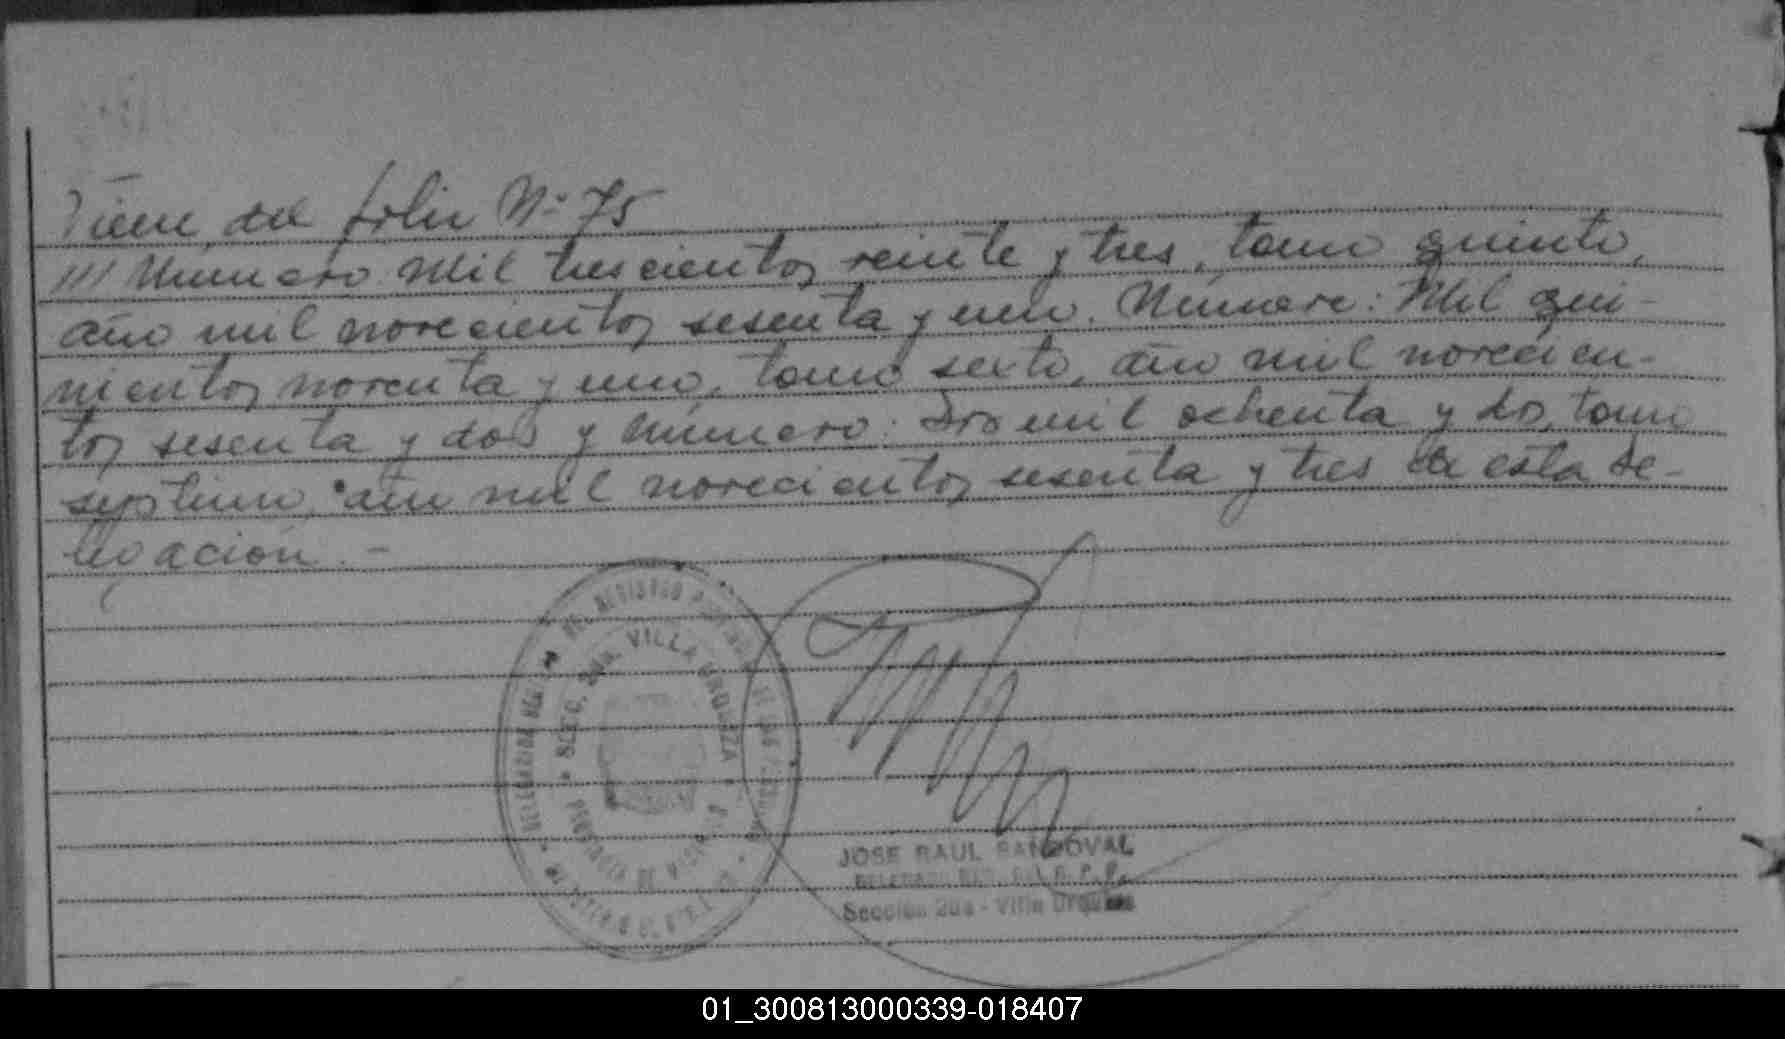 Viene del folio Nº 75
/// Número Mil trescientos veinte y tres, tomo quinto,
año mil novecientos sesenta y uno. Número: Mil qui-
nientos noventa y uno, tomo sexto, año mil novecien-
tos sesenta y dos y número: Dos mil ochenta y dos, tomo
septimo, año mil novecientos sesenta y tres de esta de-
legación. -
SECC. 20a. VILLA URQUIZA
JOSE RAUL SANDOVAL
DELEGADO REG. DEL R. P. P.
Sección 20a - Villa Urquiza
01_300813000339-018407